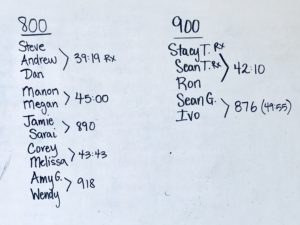 800
Steve
Andrew > 39:19 Rx
Dan
Manon
Megan > 45:00
Jamie
Sarai > 890
Corey
Melissa > 43:43
Amy G.
Wendy > 918
900
Stacy T. Rx
Sean T. Rx > 42:10
Ron
Sean G.
Ivo > 876 (49:55)